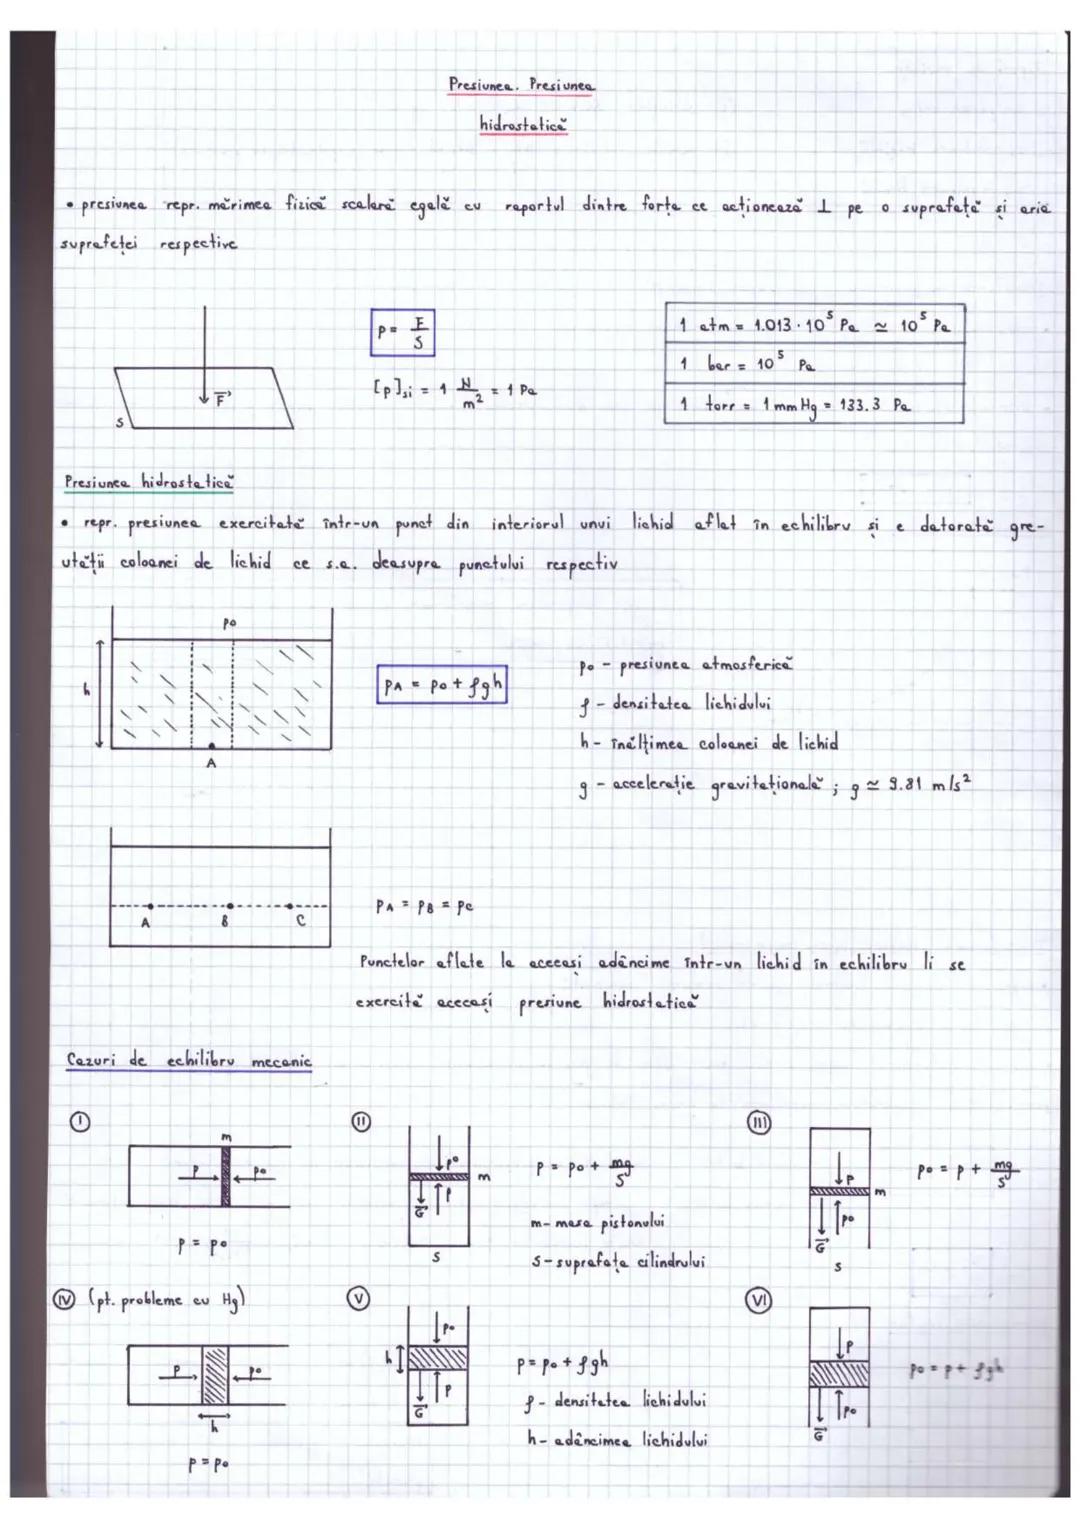 Presiunea. Presiunea
hidrostatică
• presiunea repr. mărimea fizică scalară egală cu raportul dintre forța ce acționează ⊥ pe o suprafață și aria
suprafeței respective
p = F/S
1 atm = 1.013 · 10⁵ Pa ≃ 10⁵ Pa
1 bar = 10⁵ Pa
[p]si = 1 N/m² = 1 Pa
1 torr = 1 mm Hg = 133.3 Pa
F
S
Presiunea hidrostatică
• repr. presiunea exercitată într-un punct din interiorul unui lichid aflat în echilibru și e datorată gre-
utății coloanei de lichid ce s.a. deasupra punctului respectiv
p₀
h
A
pA = p₀ + ρgh
p₀ - presiunea atmosferică
ρ - densitatea lichidului
h - înălțimea coloanei de lichid
g - accelerație gravitațională ; g ≃ 9.81 m/s²
A B C
pA = pB = pC
Punctelor aflate la aceeași adâncime într-un lichid în echilibru li se
exercită aceeași presiune hidrostatică
Cazuri de echilibru mecanic
I
m
p p₀
p = p₀
II
p₀
m
G p
S
p = p₀ + mg/S
m - masa pistonului
S - suprafața cilindrului
III
p
m
G p₀
S
p₀ = p + mg/S
IV (pt. probleme cu Hg)
p p₀
h
p = p₀
V
p₀
h
G p
p = p₀ + ρgh
ρ - densitatea lichidului
h - adâncimea lichidului
VI
p
G p₀
p₀ = p + ρgh